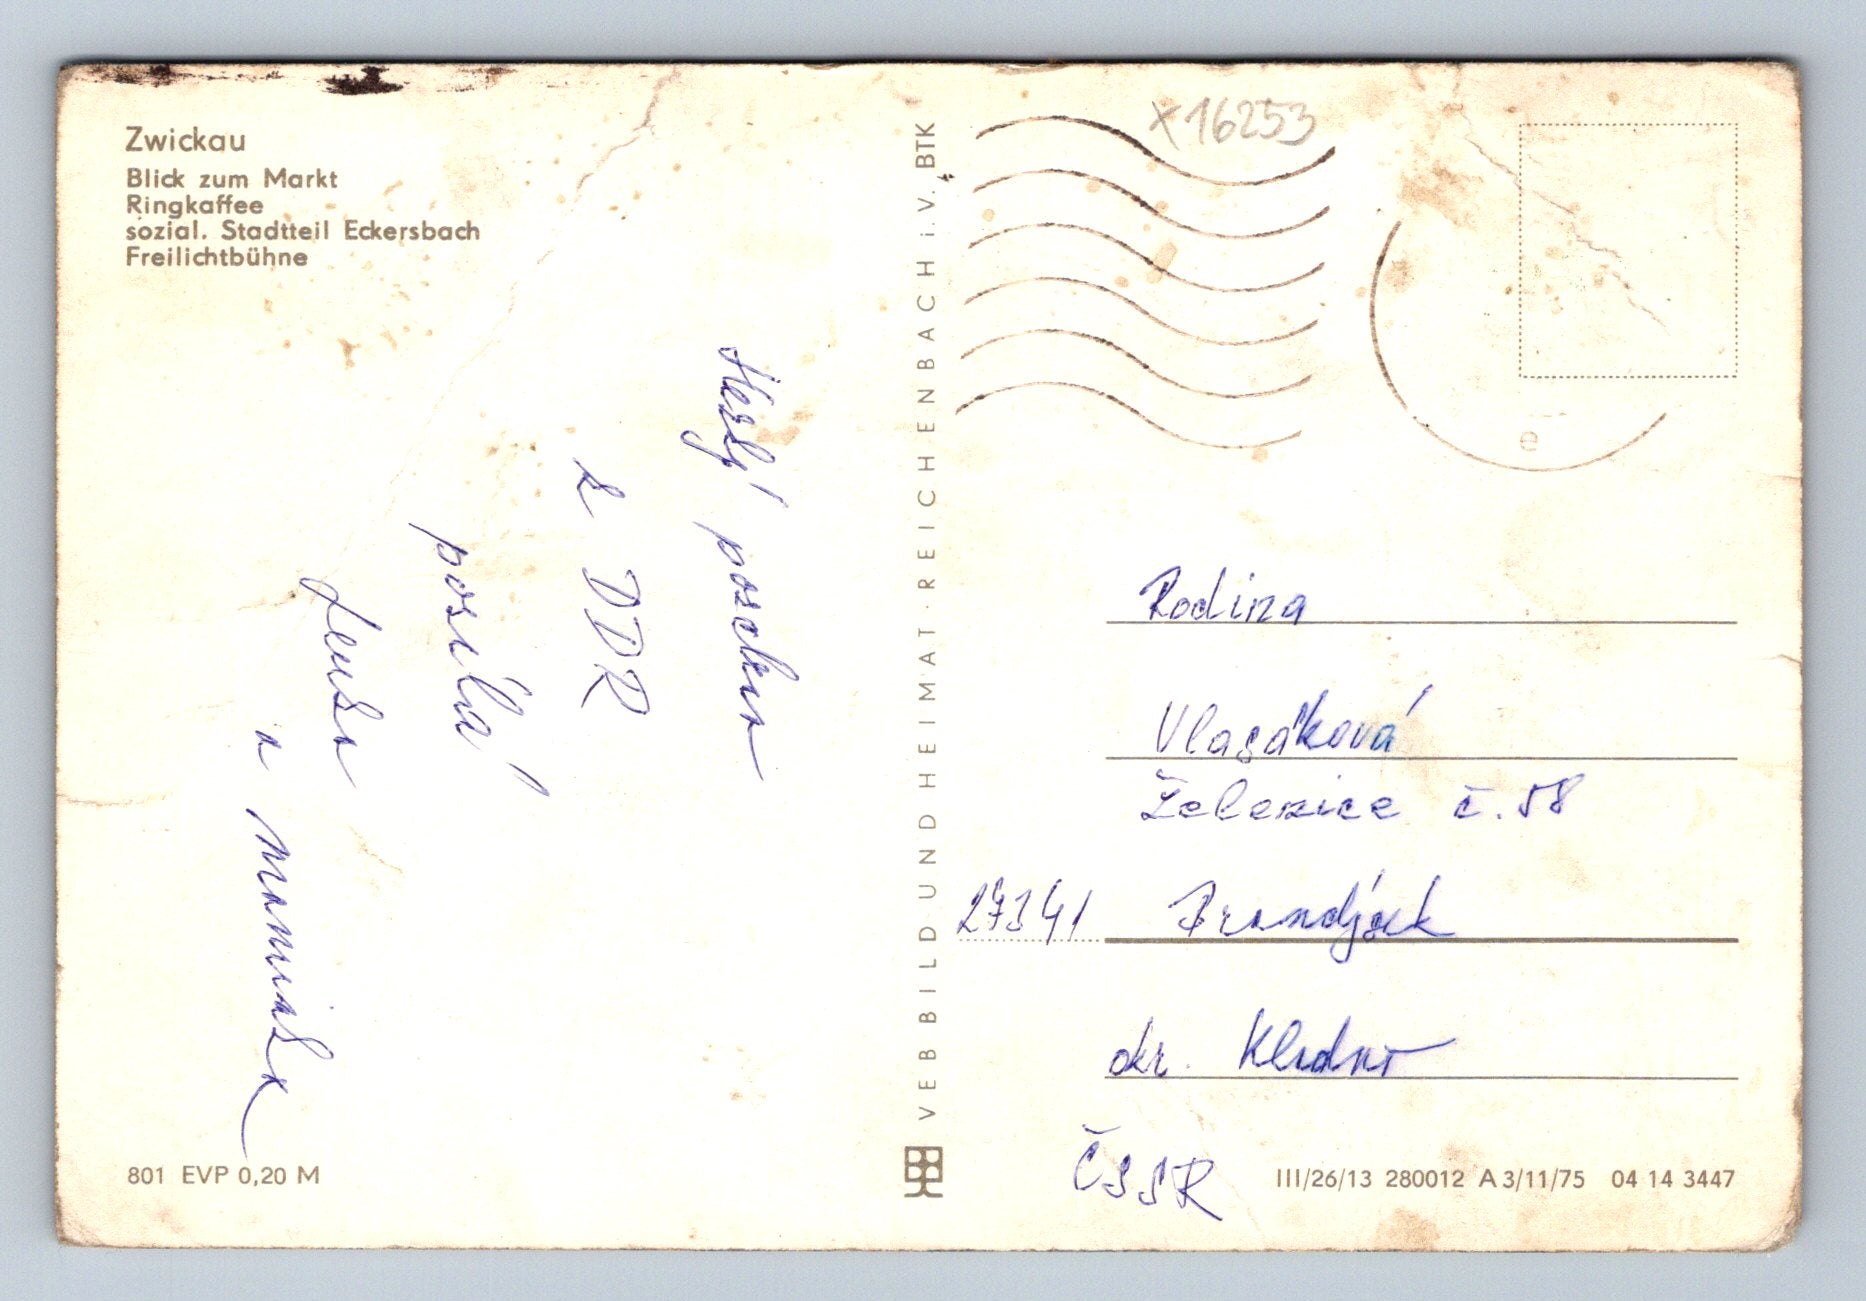 Zwickau
Blick zum Markt
Ringkaffee
sozial. Stadtteil Eckersbach
Freilichtbühne
Hezký pozdrav
z DDR
posílá
Jenda
a maminka
801 EVP 0,20 M
VEB BILD UND HEIMAT · REICHENBACH i. V. BTK
x16253
e
Rodina
Vlasáková
Železice č. 58
27341 Brandýsek
okr. Kladno
ČSSR
III/26/13 280012 A 3/11/75 04 14 3447